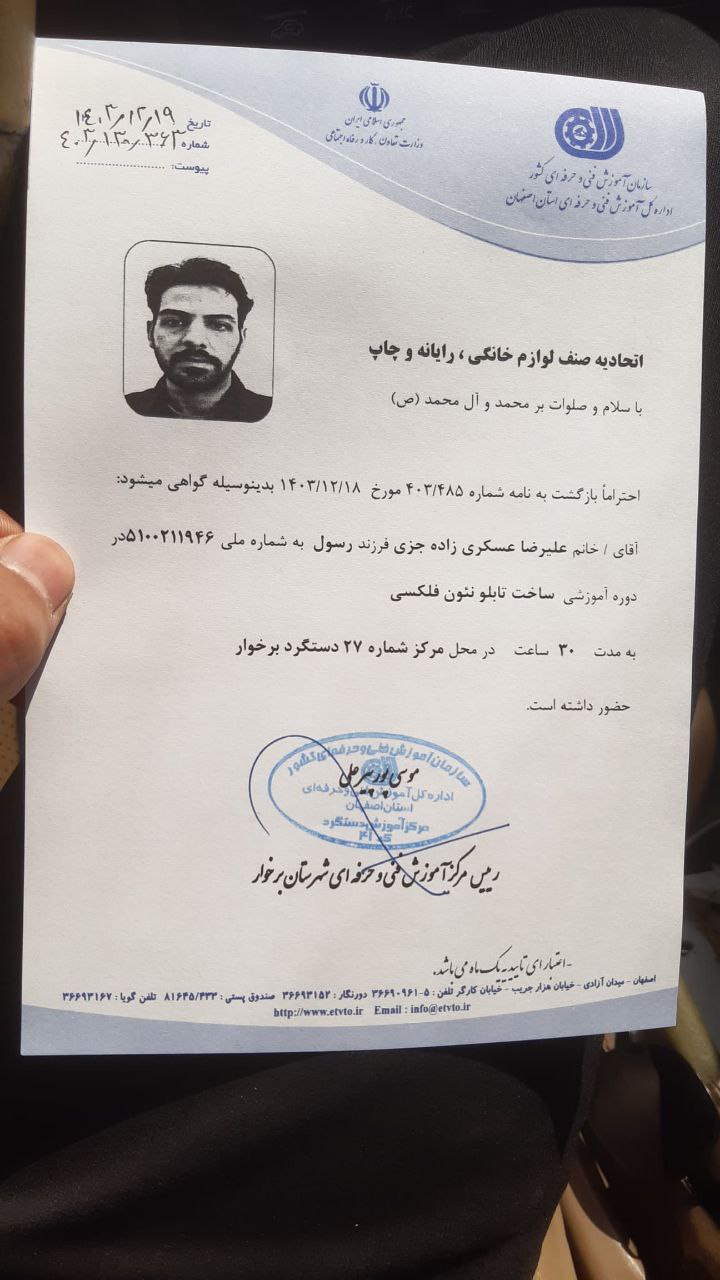 جمهوری اسلامی ایران
وزارت تعاون، کار و رفاه اجتماعی
سازمان آموزش فنی و حرفه ای کشور
اداره کل آموزش فنی و حرفه ای استان اصفهان
تاریخ ۱۴۰۳/۱۲/۱۹
شماره
پیوست:
اتحادیه صنف لوازم خانگی ، رایانه و چاپ
با سلام و صلوات بر محمد و آل محمد (ص)
احتراماً بازگشت به نامه شماره ۴۰۳/۴۸۵ مورخ ۱۴۰۳/۱۲/۱۸ بدینوسیله گواهی میشود:
آقای / خانم علیرضا عسکری زاده جزی فرزند رسول به شماره ملی ۵۱۰۰۲۱۱۹۴۶در
دوره آموزشی ساخت تابلو نئون فلکسی
به مدت ۳۰ ساعت در محل مرکز شماره ۲۷ دستگرد برخوار
حضور داشته است.
سازمان آموزش فنی و حرفه‌ای کشور
موسی پورپیرعلی
اداره کل آموزش فنی و حرفه‌ای
استان اصفهان
مرکز آموزش دستگرد
رییس مرکز آموزش فنی و حرفه ای شهرستان برخوار
-اعتبار ای تاییدیه یک ماه می باشد.
اصفهان - میدان آزادی - خیابان هزار جریب - خیابان کارگر تلفن : ۵-۳۶۶۹۰۹۶۱ دورنگار : ۳۶۶۹۳۱۵۲ صندوق پستی : ۸۱۶۴۵/۴۳۳ تلفن گویا : ۳۶۶۹۳۱۶۷
http://www.etvto.ir Email : info@etvto.ir